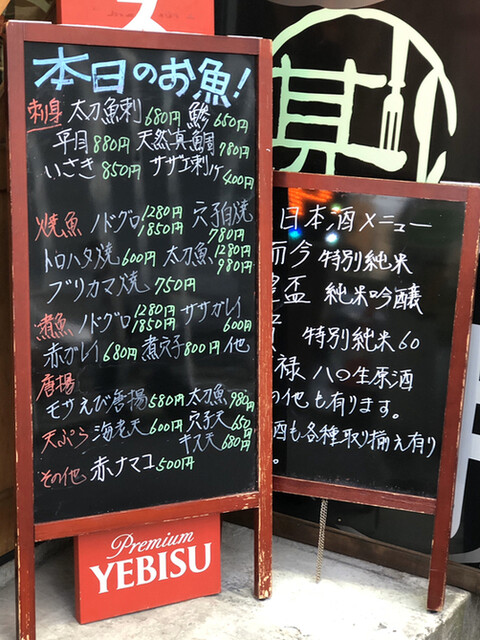 本日のお魚!
刺身 太刀魚刺 680円 鯵 650円
平目 880円 天然真鯛 780円
いさき 850円 サザエ刺 1ケ 400円
焼魚 ノドグロ 1280円 1850円 穴子白焼 780円
トロハタ焼 600円 太刀魚 1280円 980円
ブリカマ焼 750円
煮魚 ノドグロ 1280円 1850円 ササガレイ 600円
赤ガレイ 680円 煮穴子 800円 他
唐揚
モサえび唐揚 580円 太刀魚 980円
天ぷら 海老天 600円 穴子天 650円
キス天 680円
その他 赤ナマコ 500円
Premium
YEBISU
日本酒メニュー
而今 特別純米
盃 純米吟醸
特別純米60
禄 八の生原酒
の他も有ります。
酒も各種取り揃え有り
。